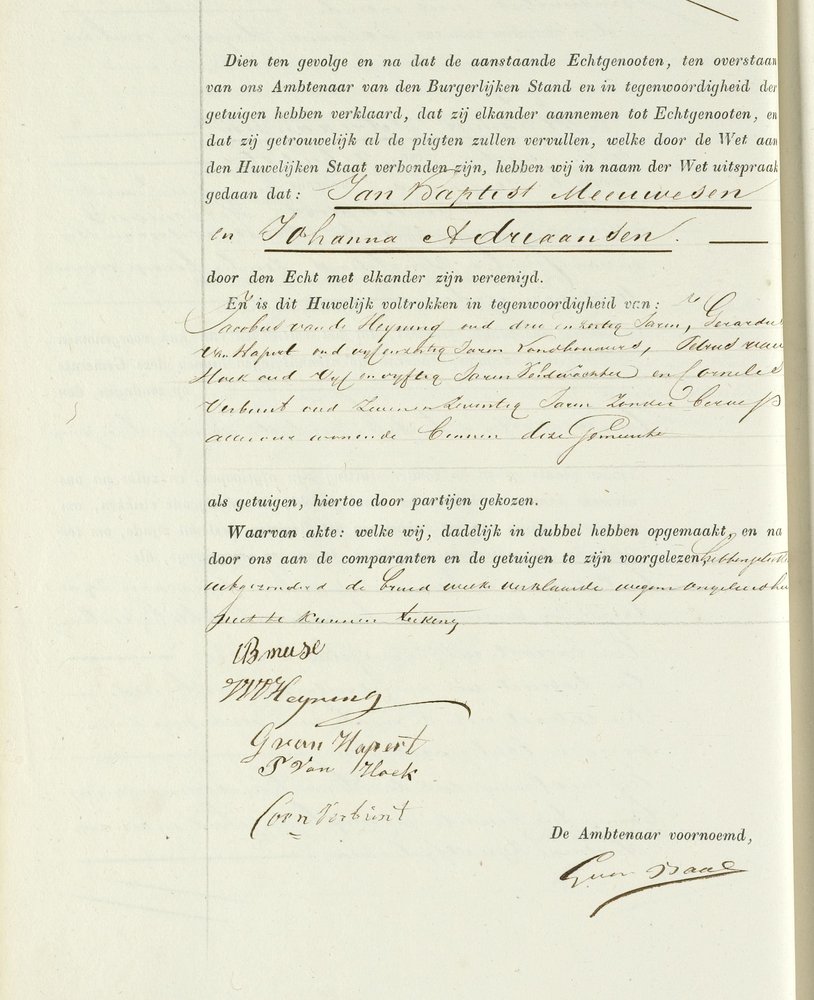 Dien ten gevolge en na dat de aanstaande Echtgenooten, ten overstaan
van ons Ambtenaar van den Burgerlijken Stand en in tegenwoordigheid der
getuigen hebben verklaard, dat zij elkander aannemen tot Echtgenooten, en
dat zij getrouwelijk al de pligten zullen vervullen, welke door de Wet aan
den Huwelijken Staat verbonden zijn, hebben wij in naam der Wet uitspraak
gedaan dat: Jan Baptist Meeuwesen
en Johanna Adriaansen.
door den Echt met elkander zijn vereenigd.
En is dit Huwelijk voltrokken in tegenwoordigheid van:
Jacobus van de Heyning oud drie en Jaren, Gerardus
van Hapert oud Jaren Landbouwers, Petrus van
Hoek oud Vyf en vyftig Jaren Veldwachter en Cornelis
Verbunt oud Zeven en Zeventig Jaren Zonder Beroep
wonende binnen deze Gemeente
als getuigen, hiertoe door partijen gekozen.
Waarvan akte: welke wij, dadelijk in dubbel hebben opgemaakt, en na
door ons aan de comparanten en de getuigen te zijn voorgelezen, hebben
uitgezonderd de bruid welke verklaarde wegens ongeleerdheid
niet te kunnen teekenen
Heyning
G van Hapert
P Van Hoek
Corn Verbunt
De Ambtenaar voornoemd,
G van Baal